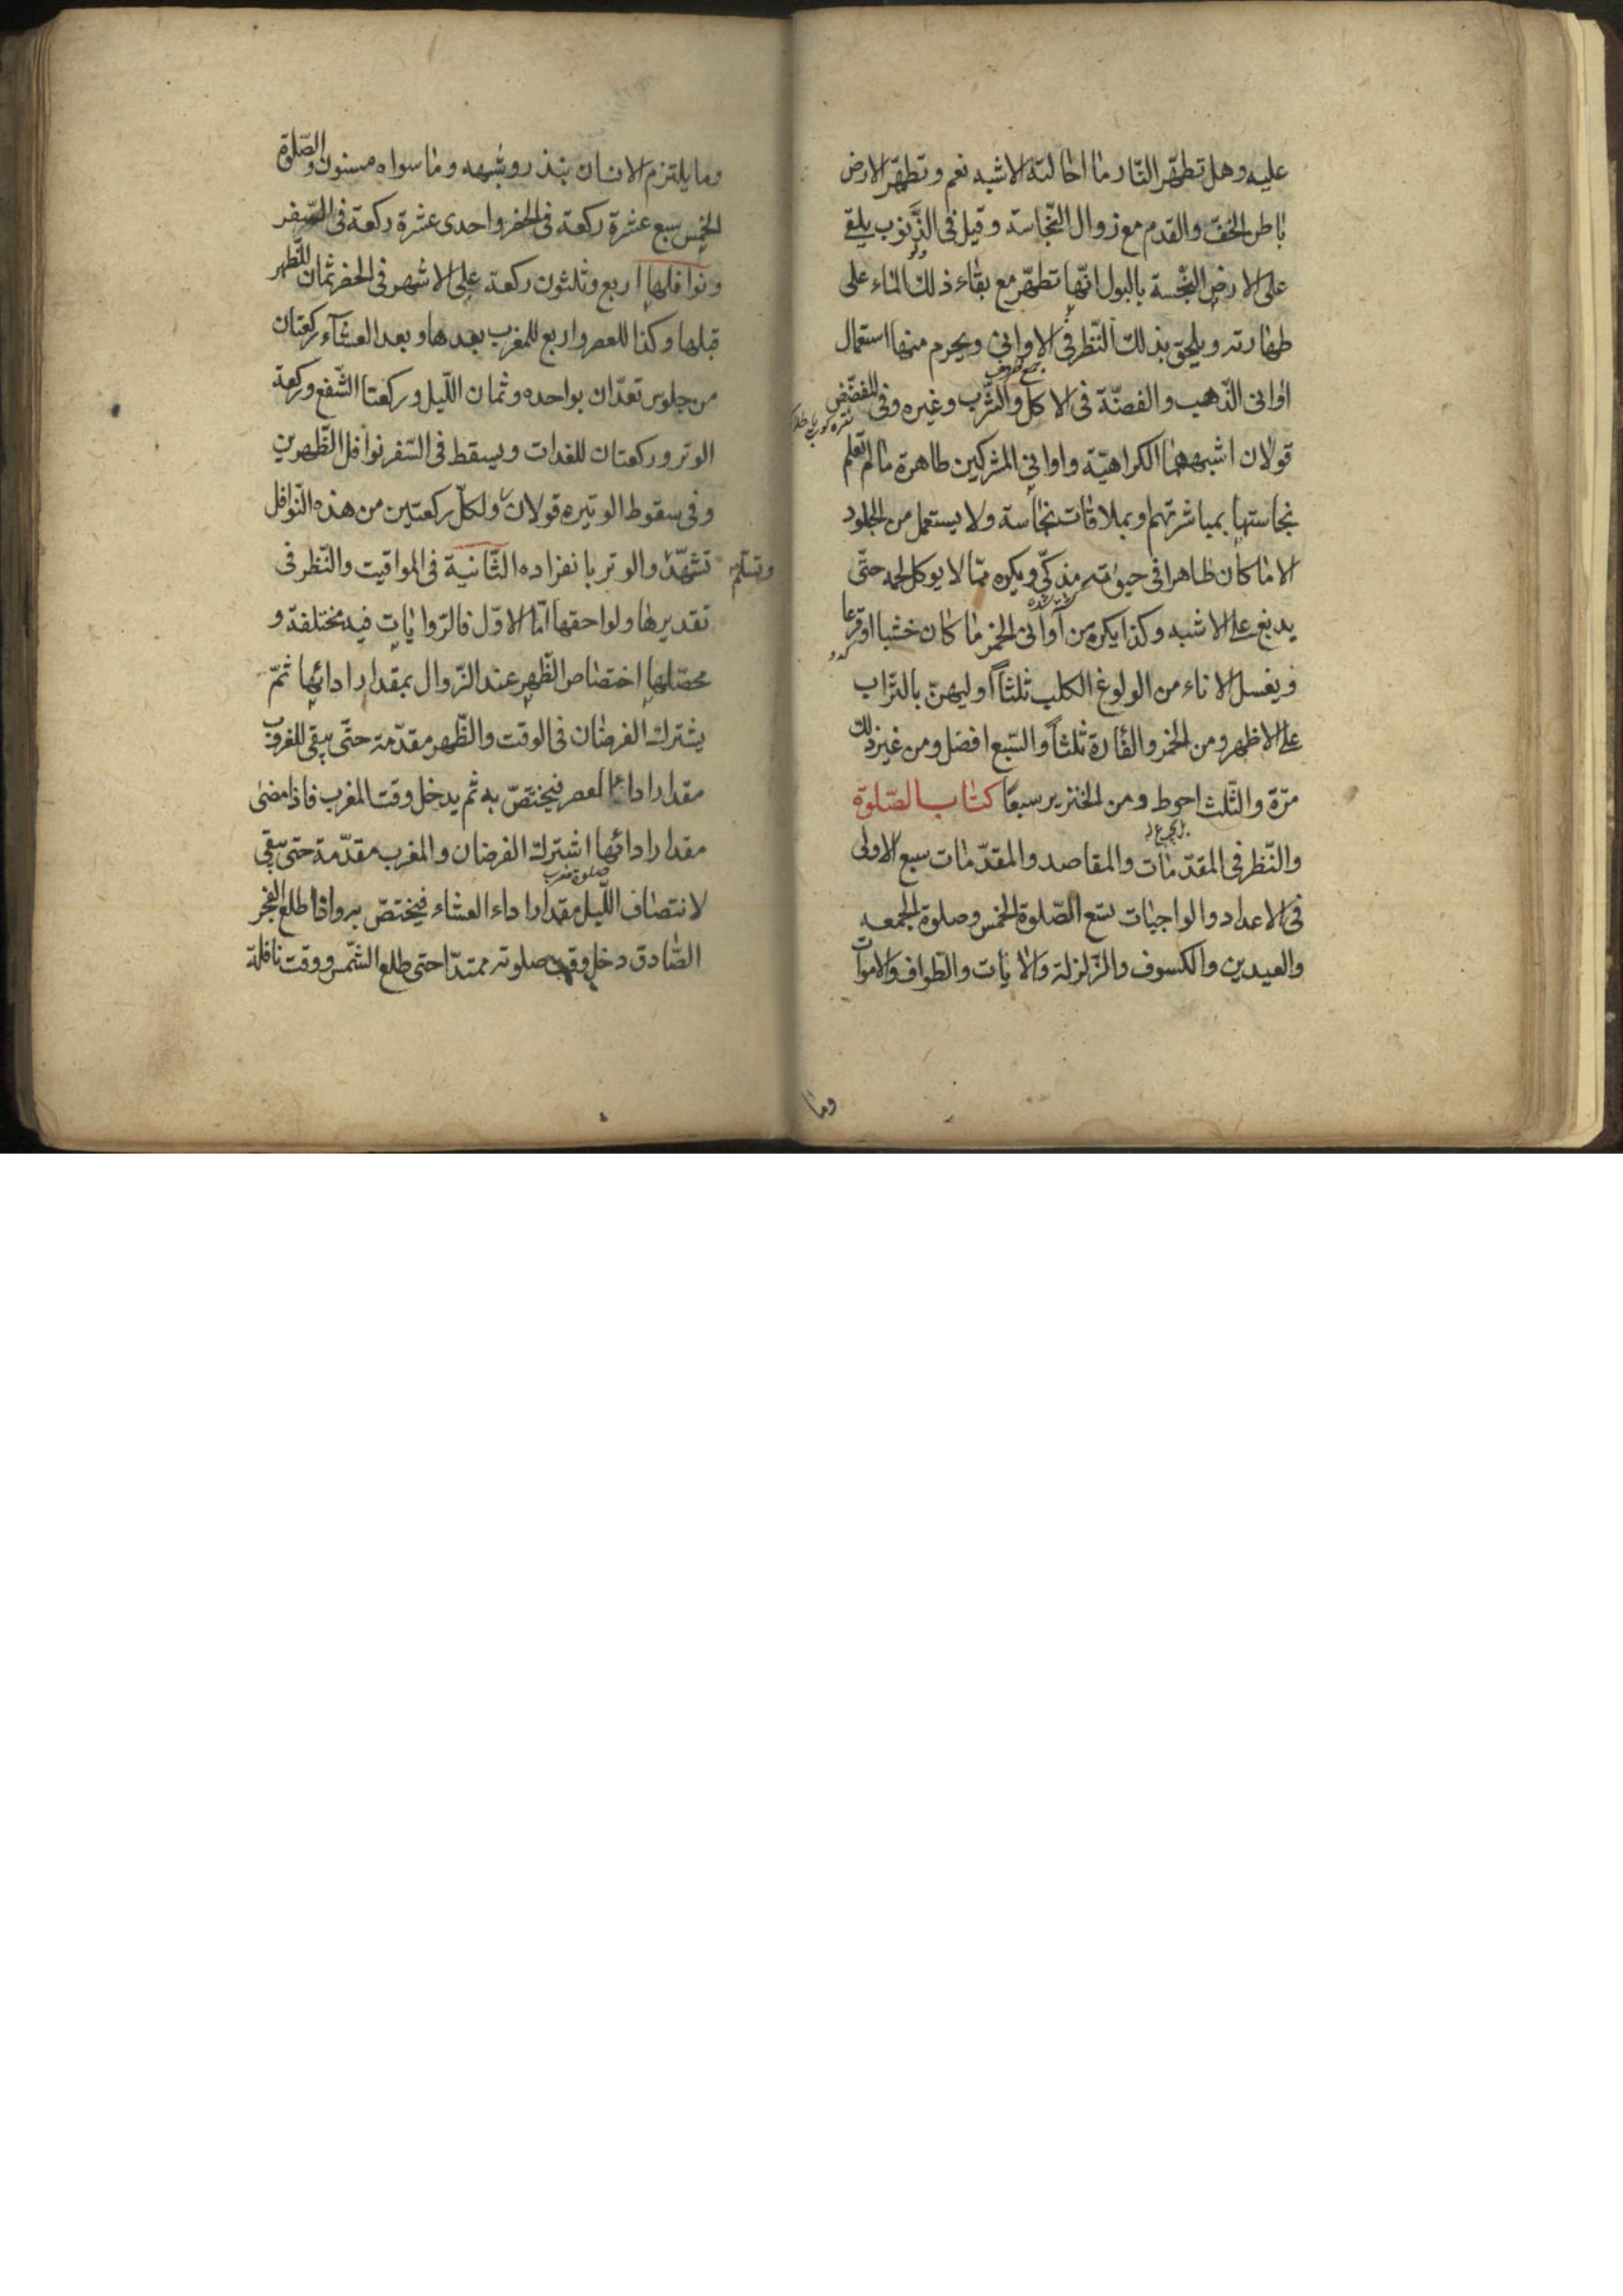 عليه وهل تطهّر النّار ما احالته الاشبه نعم وتطهّر الارض
باطن الخفّ والقدم مع زوال النّجاسة وقيل فى الذّنوب يلقى
على الارض النّجسة بالبول انّها تطهّر مع بقاء ذلك الماء على
طهارته ويلحق بذلك النّظر فى الاوانى ويحرم منها استعمال
جمع ظروف
اوانى الذّهب والفضّة فى الاكل والشّرب وغيره وفى المفضّض
قولان اشبههما الكراهيّة واوانى المشركين طاهرة ما لم تعلم
نجاستها بمباشرتهم وبملاقات نجاسة ولا يستعمل من الجلود
الا ما كان طاهرا فى حيوته مذكّى ويكره ممّا لا يوكل لحمه حتّى
يدبغ على الاشبه وكذا يكره من آوانى الخمر ما كان خشبا او قرعا
كدو
ويغسل الاناء من الولوغ الكلب ثلثاً اوليهنّ بالتّراب
على الاظهر ومن الخمر والفأرة ثلثاً والسّبع افضل ومن غير ذلك
مرّة والثّلث احوط ومن الخنزير سبعًا كتاب الصّلوة
والنّظر فى المقدّمات والمقاصد والمقدّمات سبع الاولى
فى الاعداد والواجبات تسع الصّلوة الخمس وصلوة الجمعه
والعيدين والكسوف والزّلزلة والايات والطّواف والاموات
وما
وما يلتزم الانسان بنذر وشبهه وما سواه مسنون والصّلوة
الخمس سبع عشرة ركعة فى الحضر واحدى عشرة ركعة فى السّفر
ونوافلها اربع وثلثون ركعة على الاشهر فى الحضر ثمان للظّهر
قبلها وكذا للعصر واربع للمغرب بعدها وبعد العشآء ركعتان
من جلوس تعدّان بواحده وثمان اللّيل وركعتا الشّفع وركعة
الوتر وركعتان للغدات ويسقط فى السّفر نوافل الظّهرين
وفى سقوط الوتيره قولان ولكلّ ركعتين من هذه النّوافل
تشهّد وتسليم والوتر بانفراده الثّانية فى المواقيت والنّظر فى
تقديرها ولواحقها امّا الاوّل فالرّوايات فيه مختلفة و
محصّلها اختصاص الظّهر عند الزّوال بمقدار ادائها ثمّ
يشترك الفرضان فى الوقت والظّهر مقدّمة حتّى يبقى للغروب
مقدار اداء العصر فيختصّ به ثم يدخل وقت المغرب فاذا مضى
مقدار ادائها اشترك الفرضان والمغرب مقدّمة حتى يبقى
صلوة مغرب
لانتصاف اللّيل مقدار اداء العشاء فيختصّ به واذا طلع الفجر
الصّادق دخل وقت صلوته ممتدّا حتى طلع الشّمس ووقت نافلة